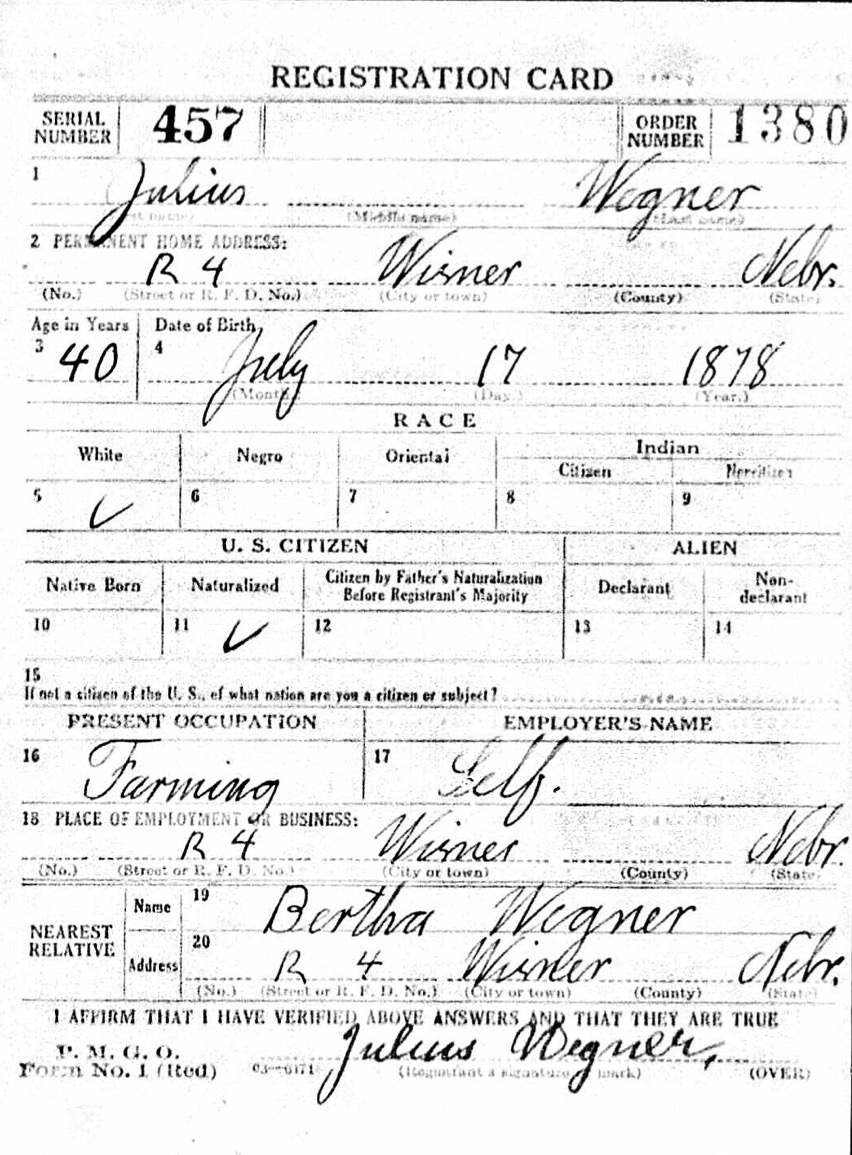 REGISTRATION CARD
SERIAL NUMBER 457 ORDER NUMBER 1380
1 Julius Wegner
(Middle name) (Last name)
2 PERMANENT HOME ADDRESS:
R 4 Wisner Nebr.
(No.) (Street or R. F. D. No.) (City or town) (County) (State)
Age in Years Date of Birth
3 40 4 July 17 1878
(Month.) (Day.) (Year.)
RACE
White Negro Oriental Indian
Citizen Noncitizen
5 ✓ 6 7 8 9
U. S. CITIZEN ALIEN
Native Born Naturalized Citizen by Father's Naturalization Before Registrant's Majority Declarant Non-declarant
10 11 ✓ 12 13 14
15
If not a citizen of the U. S., of what nation are you a citizen or subject?
PRESENT OCCUPATION EMPLOYER'S NAME
16 Farming 17 Self.
18 PLACE OF EMPLOYMENT OR BUSINESS:
R 4 Wisner Nebr.
(No.) (Street or R. F. D. No.) (City or town) (County) (State)
NEAREST RELATIVE Name 19 Bertha Wegner
Address 20 R 4 Wisner Nebr.
(No.) (Street or R. F. D. No.) (City or town) (County) (State)
I AFFIRM THAT I HAVE VERIFIED ABOVE ANSWERS AND THAT THEY ARE TRUE
P. M. G. O.
Form No. 1 (Red) 03—6171 Julius Wegner,
(Registrant's signature mark) (OVER)